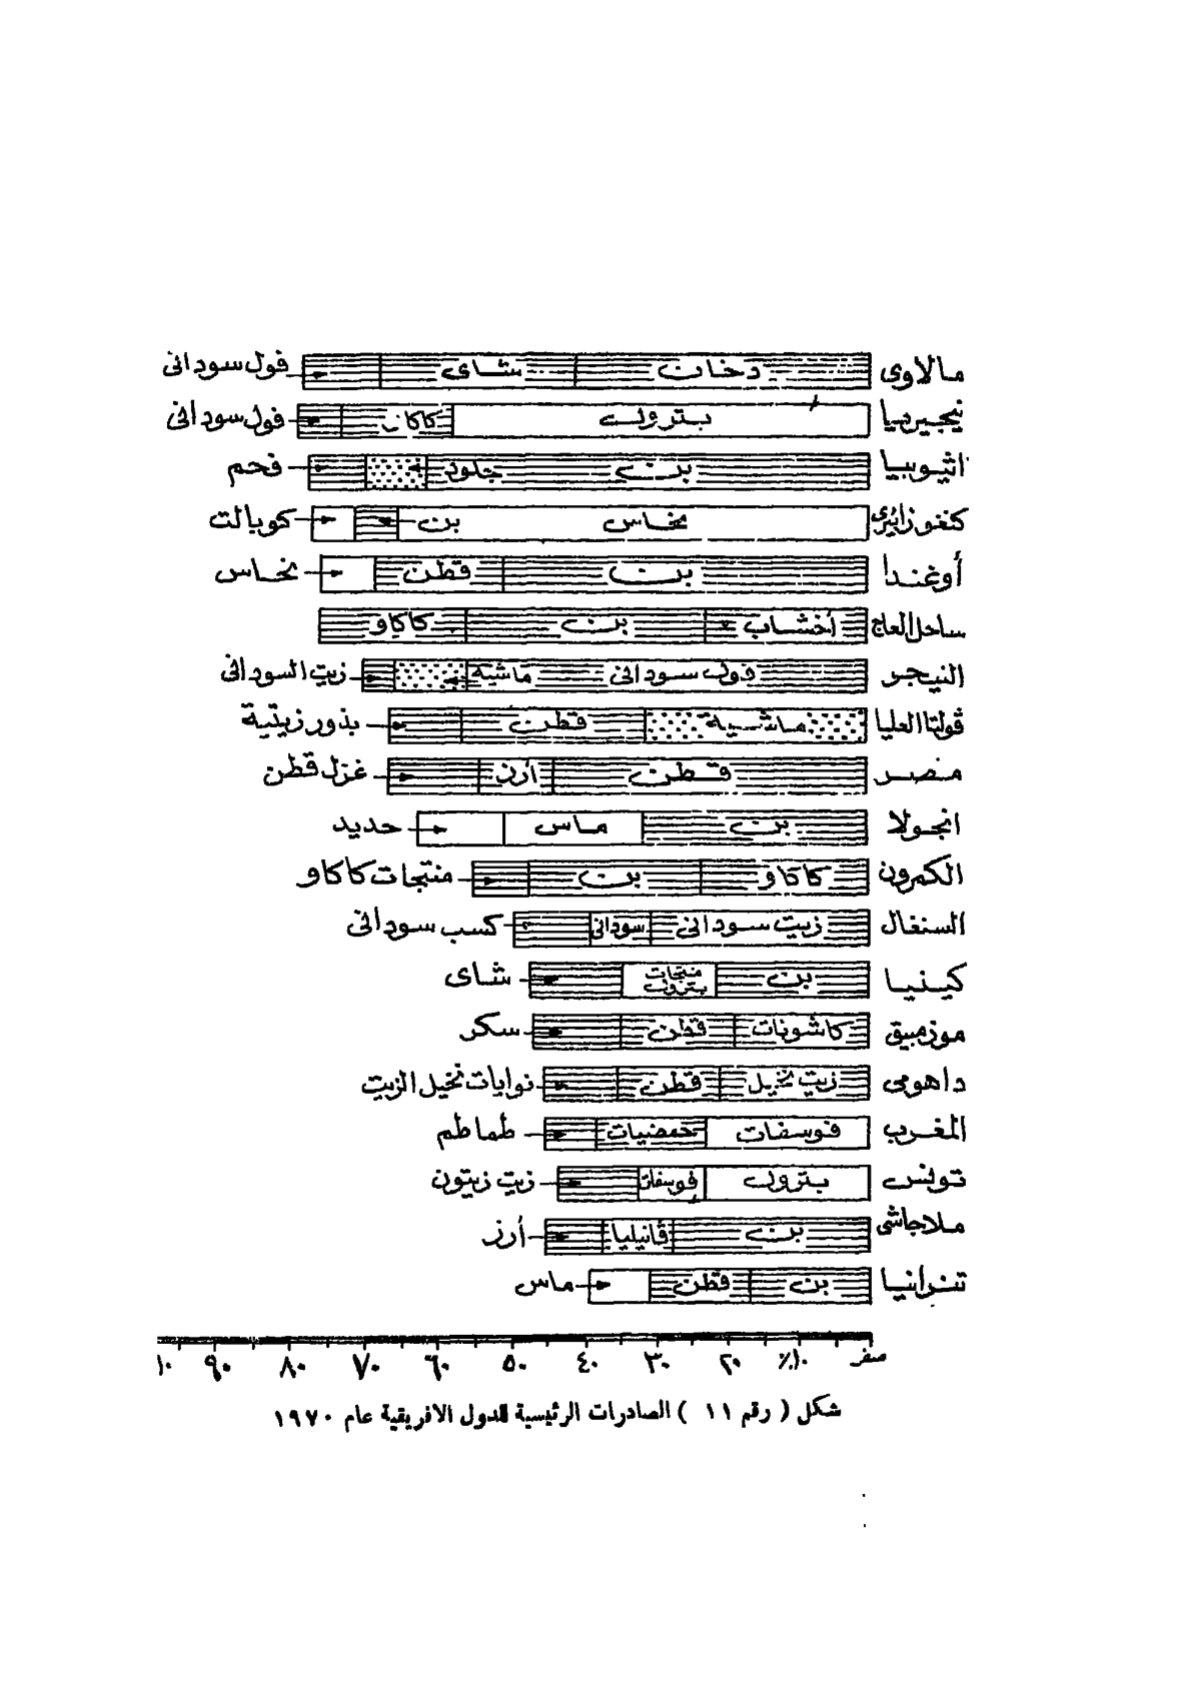 مالاوى دخان شاى فول سودانى
نيجيريا بترول كاكاو فول سودانى
اثيوبيا بن جلود فحم
كنغو زائيرى نحاس بن كوبالت
أوغندا بن قطن نحاس
ساحل العاج أخشاب بن كاكاو
النيجر فول سودانى ماشية زيت السودانى
ڤولتا العليا ماشية قطن بذور زيتية
مصر قطن أرز غزل قطن
انجولا بن ماس حديد
الكمرون كاكاو بن منتجات كاكاو
السنغال زيت سودانى سودانى كسب سودانى
كينيا بن منتجات بترول شاى
موزمبيق كاشونات قطن سكر
داهومى زيت نخيل قطن نوايات نخيل الزيت
المغرب فوسفات حمضيات طماطم
تونس بترول فوسفات زيت زيتون
ملاجاشى بن ڤانيليا أرز
تنزانيا بن قطن ماس
صفر ١٠٪ ٢٠ ٣٠ ٤٠ ٥٠ ٦٠ ٧٠ ٨٠ ٩٠ ١٠
شكل ( رقم ١١ ) الصادرات الرئيسية للدول الافريقية عام ١٩٧٠